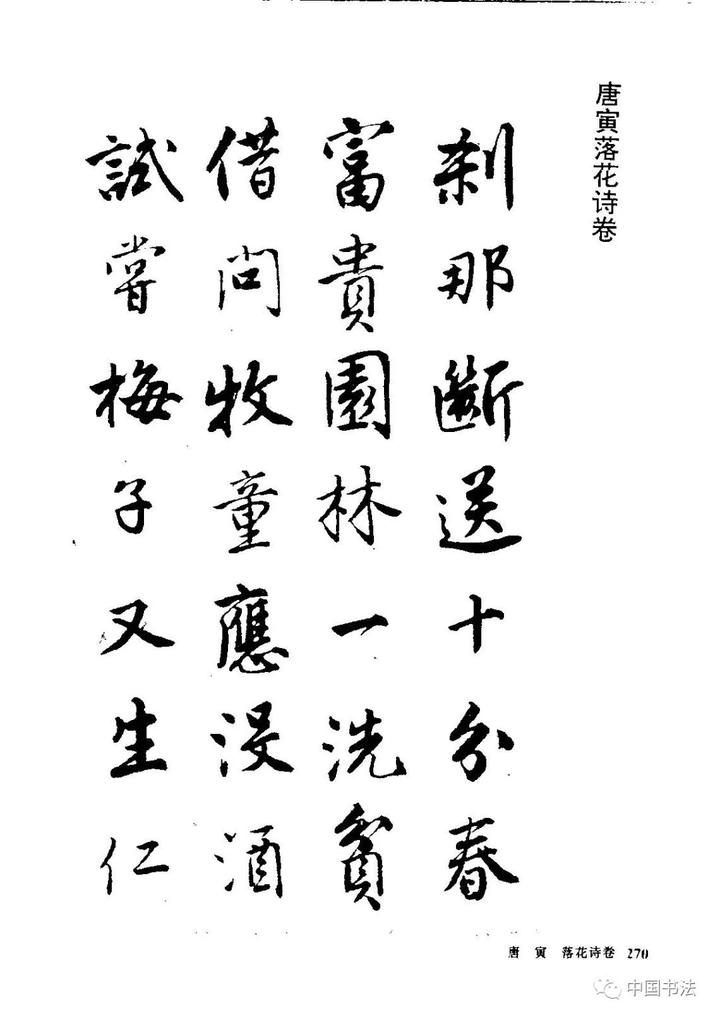 唐寅落花诗卷
刹那斷送十分春
富貴園林一洗貧
借問牧童應没酒
試嘗梅子又生仁
唐 寅 落花诗卷 270
中国书法